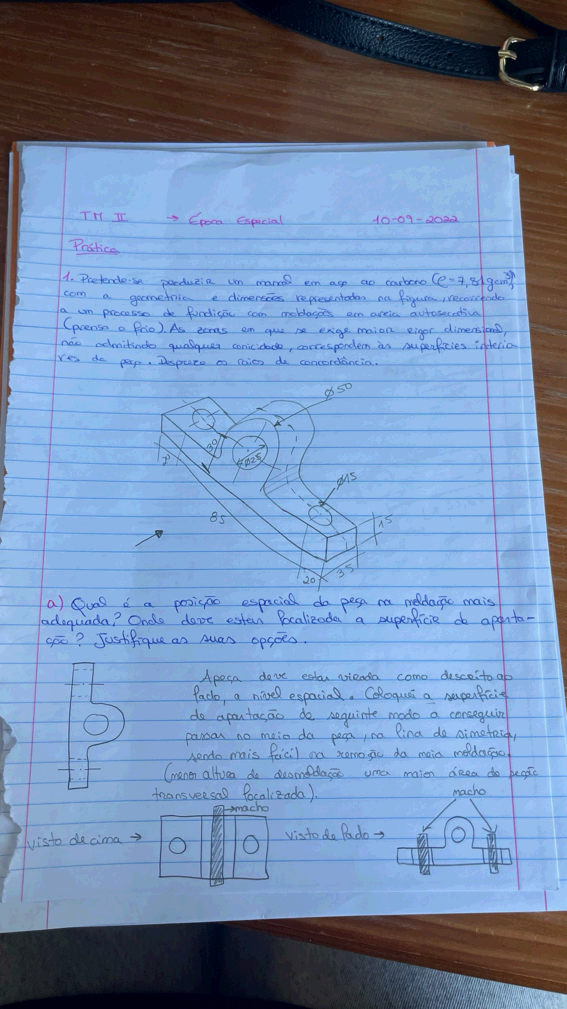 TM II → Época Especial 10-09-2022
Prática
1. Pretende-se produzir um mancal em aço ao carbono (ρ=7,81 g/cm³)
com a geometria e dimensões representadas na figura, recorrendo
a um processo de fundição com moldações em areia autosecativa
(prensa a frio). As zonas em que se exige maior rigor dimensional,
não admitindo qualquer conicidade, correspondem às superfícies interio-
res da peça. Despreze os raios de concordância.
Ø50
30
Ø25
Ø15
85
15
20
35
a) Qual é a posição espacial da peça na moldação mais
adequada? Onde deve estar localizada a superfície de aparta-
ção? Justifique as suas opções.
A peça deve estar virada como descrito ao
lado, a nível espacial. Coloquei a superfície
de apartação de seguinte modo a conseguir
passar no meio da peça, na linha de simetria,
sendo mais fácil na remoção da meia moldação.
(menor altura de desmoldação uma maior área de secção
transversal localizada).
macho
macho
visto de cima →
visto de lado →